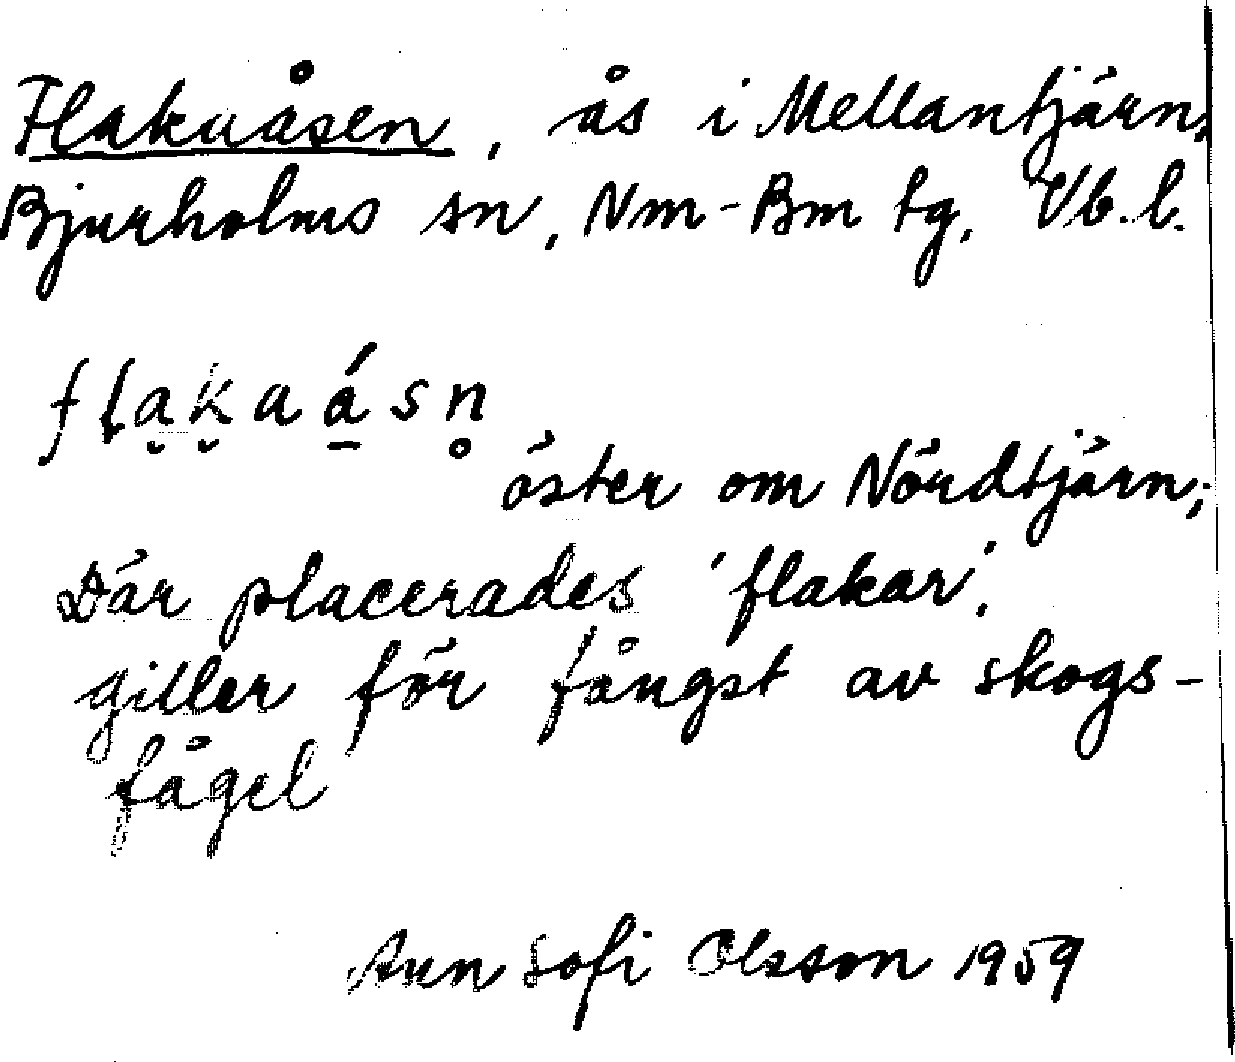 Flakuåsen, ås i Mellantjärn,
Bjurholms sn, Nm-Bm tg, Vb. l.
flakaásn
öster om Nördtjärn;
Där placerades 'flakar',
giller för fångst av skogs-
fågel
Ann Sofi Olsson 1959